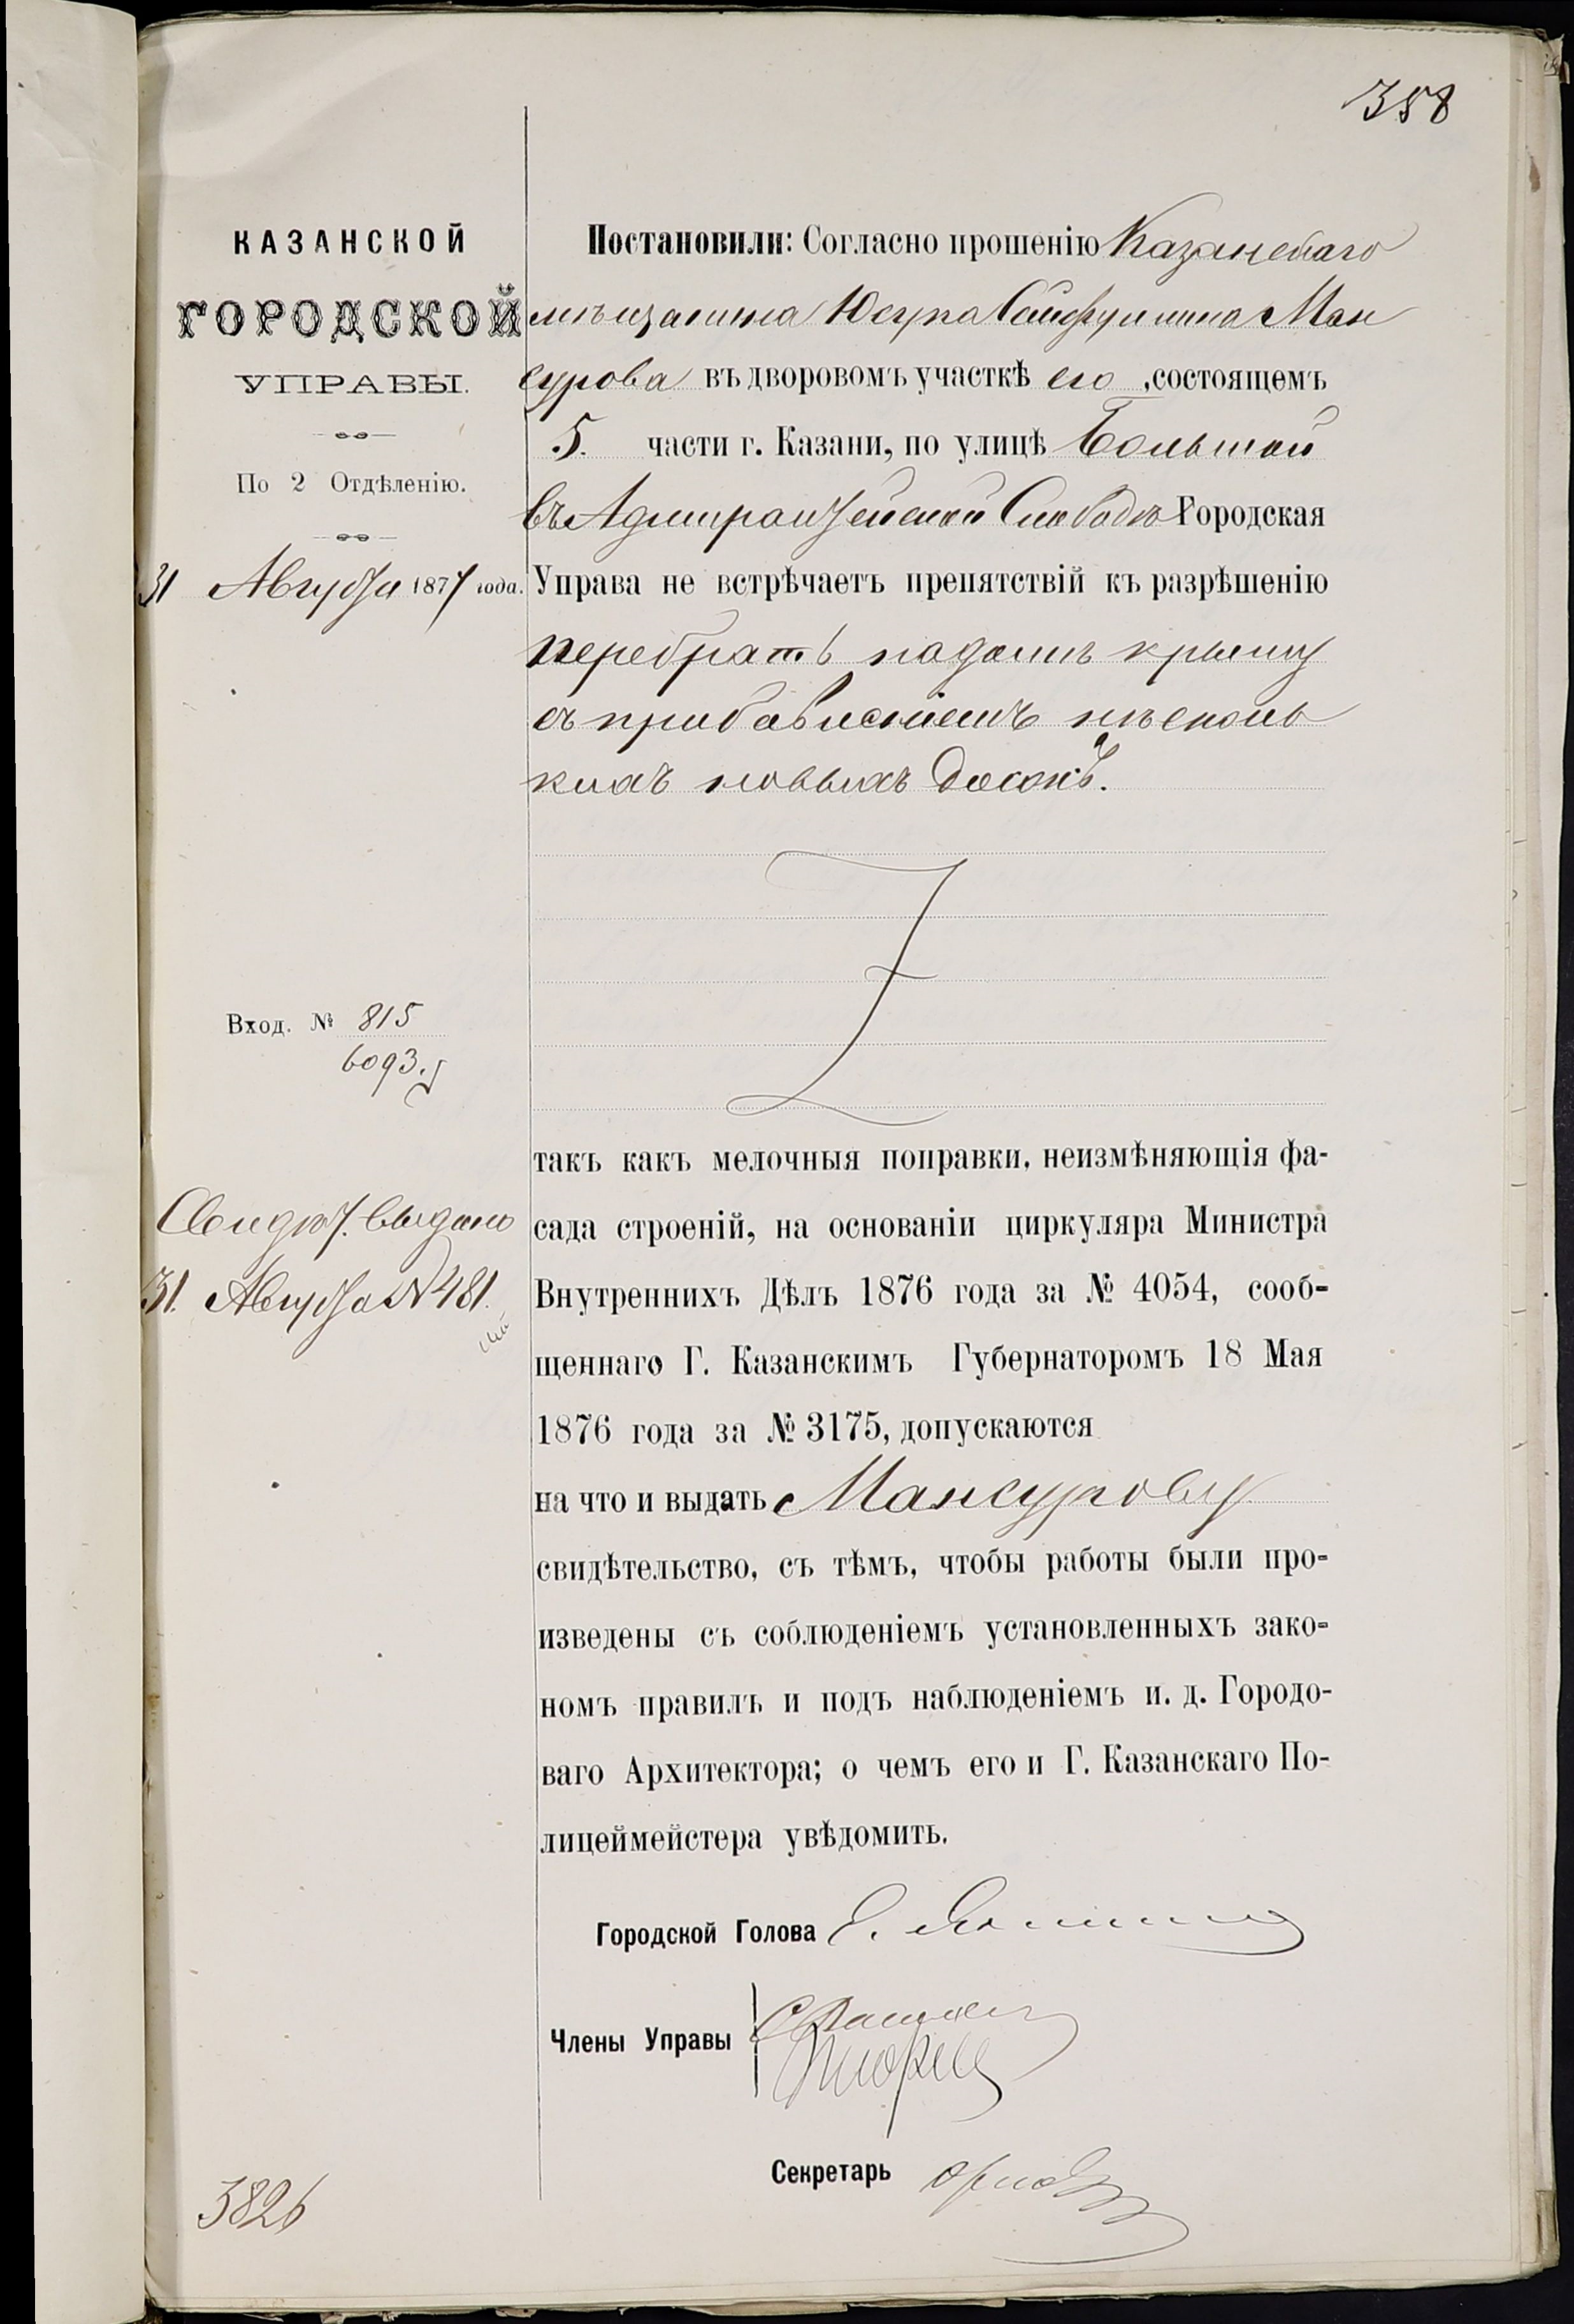 358
КАЗАНСКОЙ
ГОРОДСКОЙ
УПРАВЫ.
По 2 Отдѣленію.
31 Августа 1877 года.
Вход. № 815
6093.
Свидѣт. выдано
31. Августа № 481.
3826
Постановили: Согласно прошенію Казанскаго
мѣщанина Юсупа Сейфуллина Ман
сурова въ дворовомъ участкѣ его, состоящемъ
5. части г. Казани, по улицѣ Большой
въ Адмиралтейской Слободѣ Городская
Управа не встрѣчаетъ препятствій къ разрѣшенію
перебрать на домѣ крышу
съ прибавленіемъ нѣсколь
кихъ новыхъ досокъ.
такъ какъ мелочныя поправки, неизмѣняющія фа-
сада строеній, на основаніи циркуляра Министра
Внутреннихъ Дѣлъ 1876 года за № 4054, сооб-
щеннаго Г. Казанскимъ Губернаторомъ 18 Мая
1876 года за № 3175, допускаются
на что и выдать Мансурову
свидѣтельство, съ тѣмъ, чтобы работы были про-
изведены съ соблюденіемъ установленныхъ зако-
номъ правилъ и подъ наблюденіемъ и. д. Городо-
ваго Архитектора; о чемъ его и Г. Казанскаго По-
лицеймейстера увѣдомить.
Городской Голова
Члены Управы
Секретарь